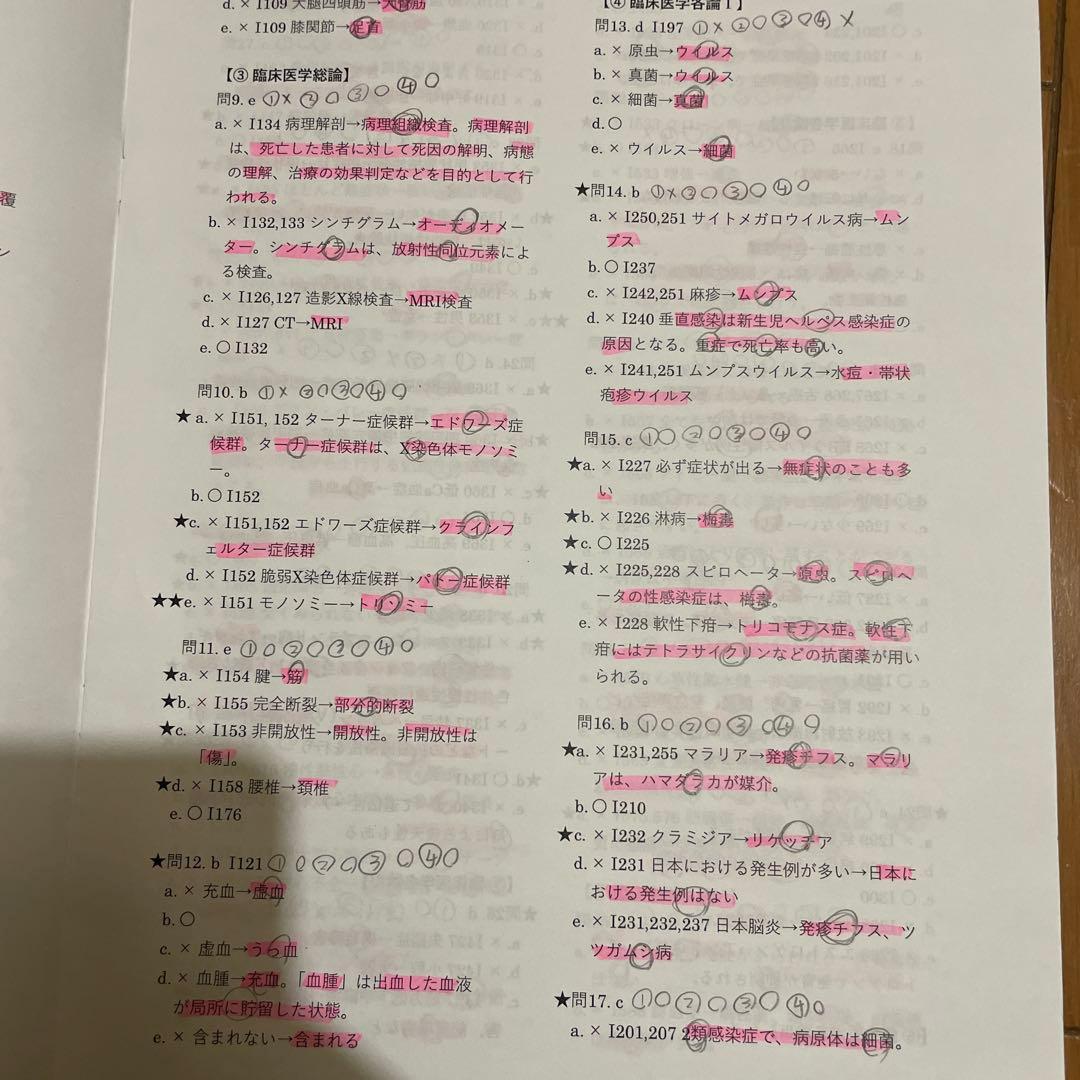 d. × I109 大腿四頭筋→大臀筋
e. × I109 膝関節→足首
【③ 臨床医学総論】
問9. e ①× ②○ ③○ ④○
a. × I134 病理解剖→病理組織検査。病理解剖
は、死亡した患者に対して死因の解明、病態
の理解、治療の効果判定などを目的として行
われる。
b. × I132,133 シンチグラム→オーディオメー
ター。シンチグラムは、放射性同位元素によ
る検査。
c. × I126,127 造影X線検査→MRI検査
d. × I127 CT→MRI
e. ○ I132
問10. b ①× ②○ ③○ ④○
★ a. × I151, 152 ターナー症候群→エドワーズ症
候群。ターナー症候群は、X染色体モノソミ
ー。
b. ○ I152
★c. × I151,152 エドワーズ症候群→クラインフ
ェルター症候群
d. × I152 脆弱X染色体症候群→パトー症候群
★★e. × I151 モノソミー→トリソミー
問11. e ①○ ②○ ③○ ④○
★a. × I154 腱→筋
★b. × I155 完全断裂→部分的断裂
★c. × I153 非開放性→開放性。非開放性は
「傷」。
★d. × I158 腰椎→頚椎
e. ○ I176
★問12. b I121 ①○ ②○ ③○ ④○
a. × 充血→虚血
b. ○
c. × 虚血→うっ血
d. × 血腫→充血。「血腫」は出血した血液
が局所に貯留した状態。
e. × 含まれない→含まれる
【④ 臨床医学各論 I 】
問13. d I197 ①× ②○ ③○ ④×
a. × 原虫→ウイルス
b. × 真菌→ウイルス
c. × 細菌→真菌
d. ○
e. × ウイルス→細菌
★問14. b ①× ②○ ③○ ④○
a. × I250,251 サイトメガロウイルス病→ムン
プス
b. ○ I237
c. × I242,251 麻疹→ムンプス
d. × I240 垂直感染は新生児ヘルペス感染症の
原因となる。重症で死亡率も高い。
e. × I241,251 ムンプスウイルス→水痘・帯状
疱疹ウイルス
問15. c ①○ ②○ ③○ ④○
★a. × I227 必ず症状が出る→無症状のことも多
い
★b. × I226 淋病→梅毒
★c. ○ I225
★d. × I225,228 スピロヘータ→原虫。スピロヘ
ータの性感染症は、梅毒。
e. × I228 軟性下疳→トリコモナス症。軟性下
疳にはテトラサイクリンなどの抗菌薬が用い
られる。
問16. b ①○ ②○ ③○ ④○
★a. × I231,255 マラリア→発疹チフス。マラリ
アは、ハマダラカが媒介。
b. ○ I210
★c. × I232 クラミジア→リケッチア
d. × I231 日本における発生例が多い→日本に
おける発生例はない
e. × I231,232,237 日本脳炎→発疹チフス、ツ
ツガムシ病
★問17. c ①○ ②○ ③○ ④○
a. × I201,207 2類感染症で、病原体は細菌。